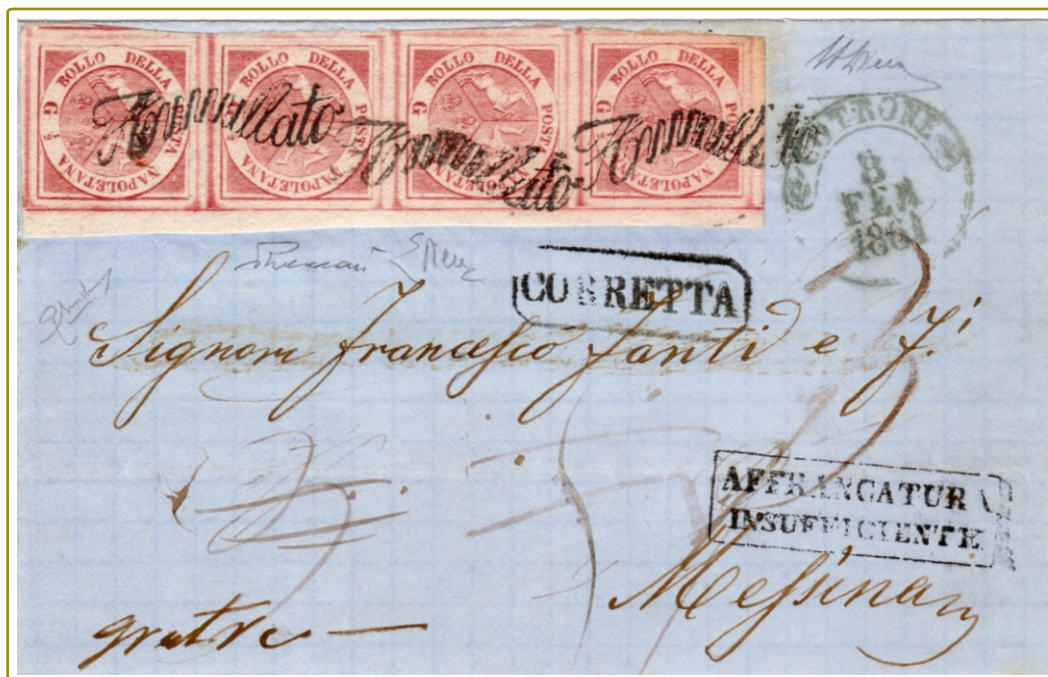 G BOLLO DELLA POSTA NAPOLETANA
G BOLLO DELLA POSTA NAPOLETANA
G BOLLO DELLA POSTA NAPOLETANA
G BOLLO DELLA POSTA NAPOLETANA
Annullato Annullato Annullato
COTRONE
8
FEB
1861
CORRETTA
Signori Francesco Fanti e F.i
AFFRANCATUR
INSUFFICIENTE
Messina